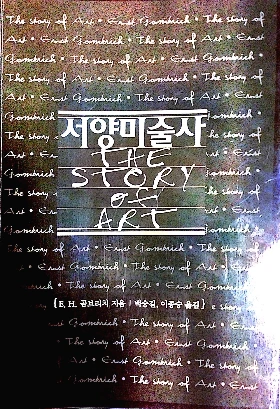 The Story of Art • Ernst Gombrich • The Story of
Art • Ernst Gombrich • The Story of Art • Ernst
Gombrich • The Story of Art • Ernst Gombrich •
The Story of Art • Ernst Gombrich • The Story of
Art • Ernst Gombrich • The Story of Art • Ernst
Gombrich • The Story of Art • Ernst Gombrich •
서양미술사
THE
STORY
OF
ART
The Story of Art • Ernst Gombrich • The Story of
Art • Ernst Gombrich • The Story of Art • Ernst
[E. H. 곰브리치 지음 / 백승길, 이종숭 옮김]
Art • Ernst Gombrich • The Story of Art • Ernst
Gombrich • The Story of Art • Ernst Gombrich •
The Story of Art • Ernst Gombrich • The Story of
Art • Ernst Gombrich • The Story of Art • Ernst